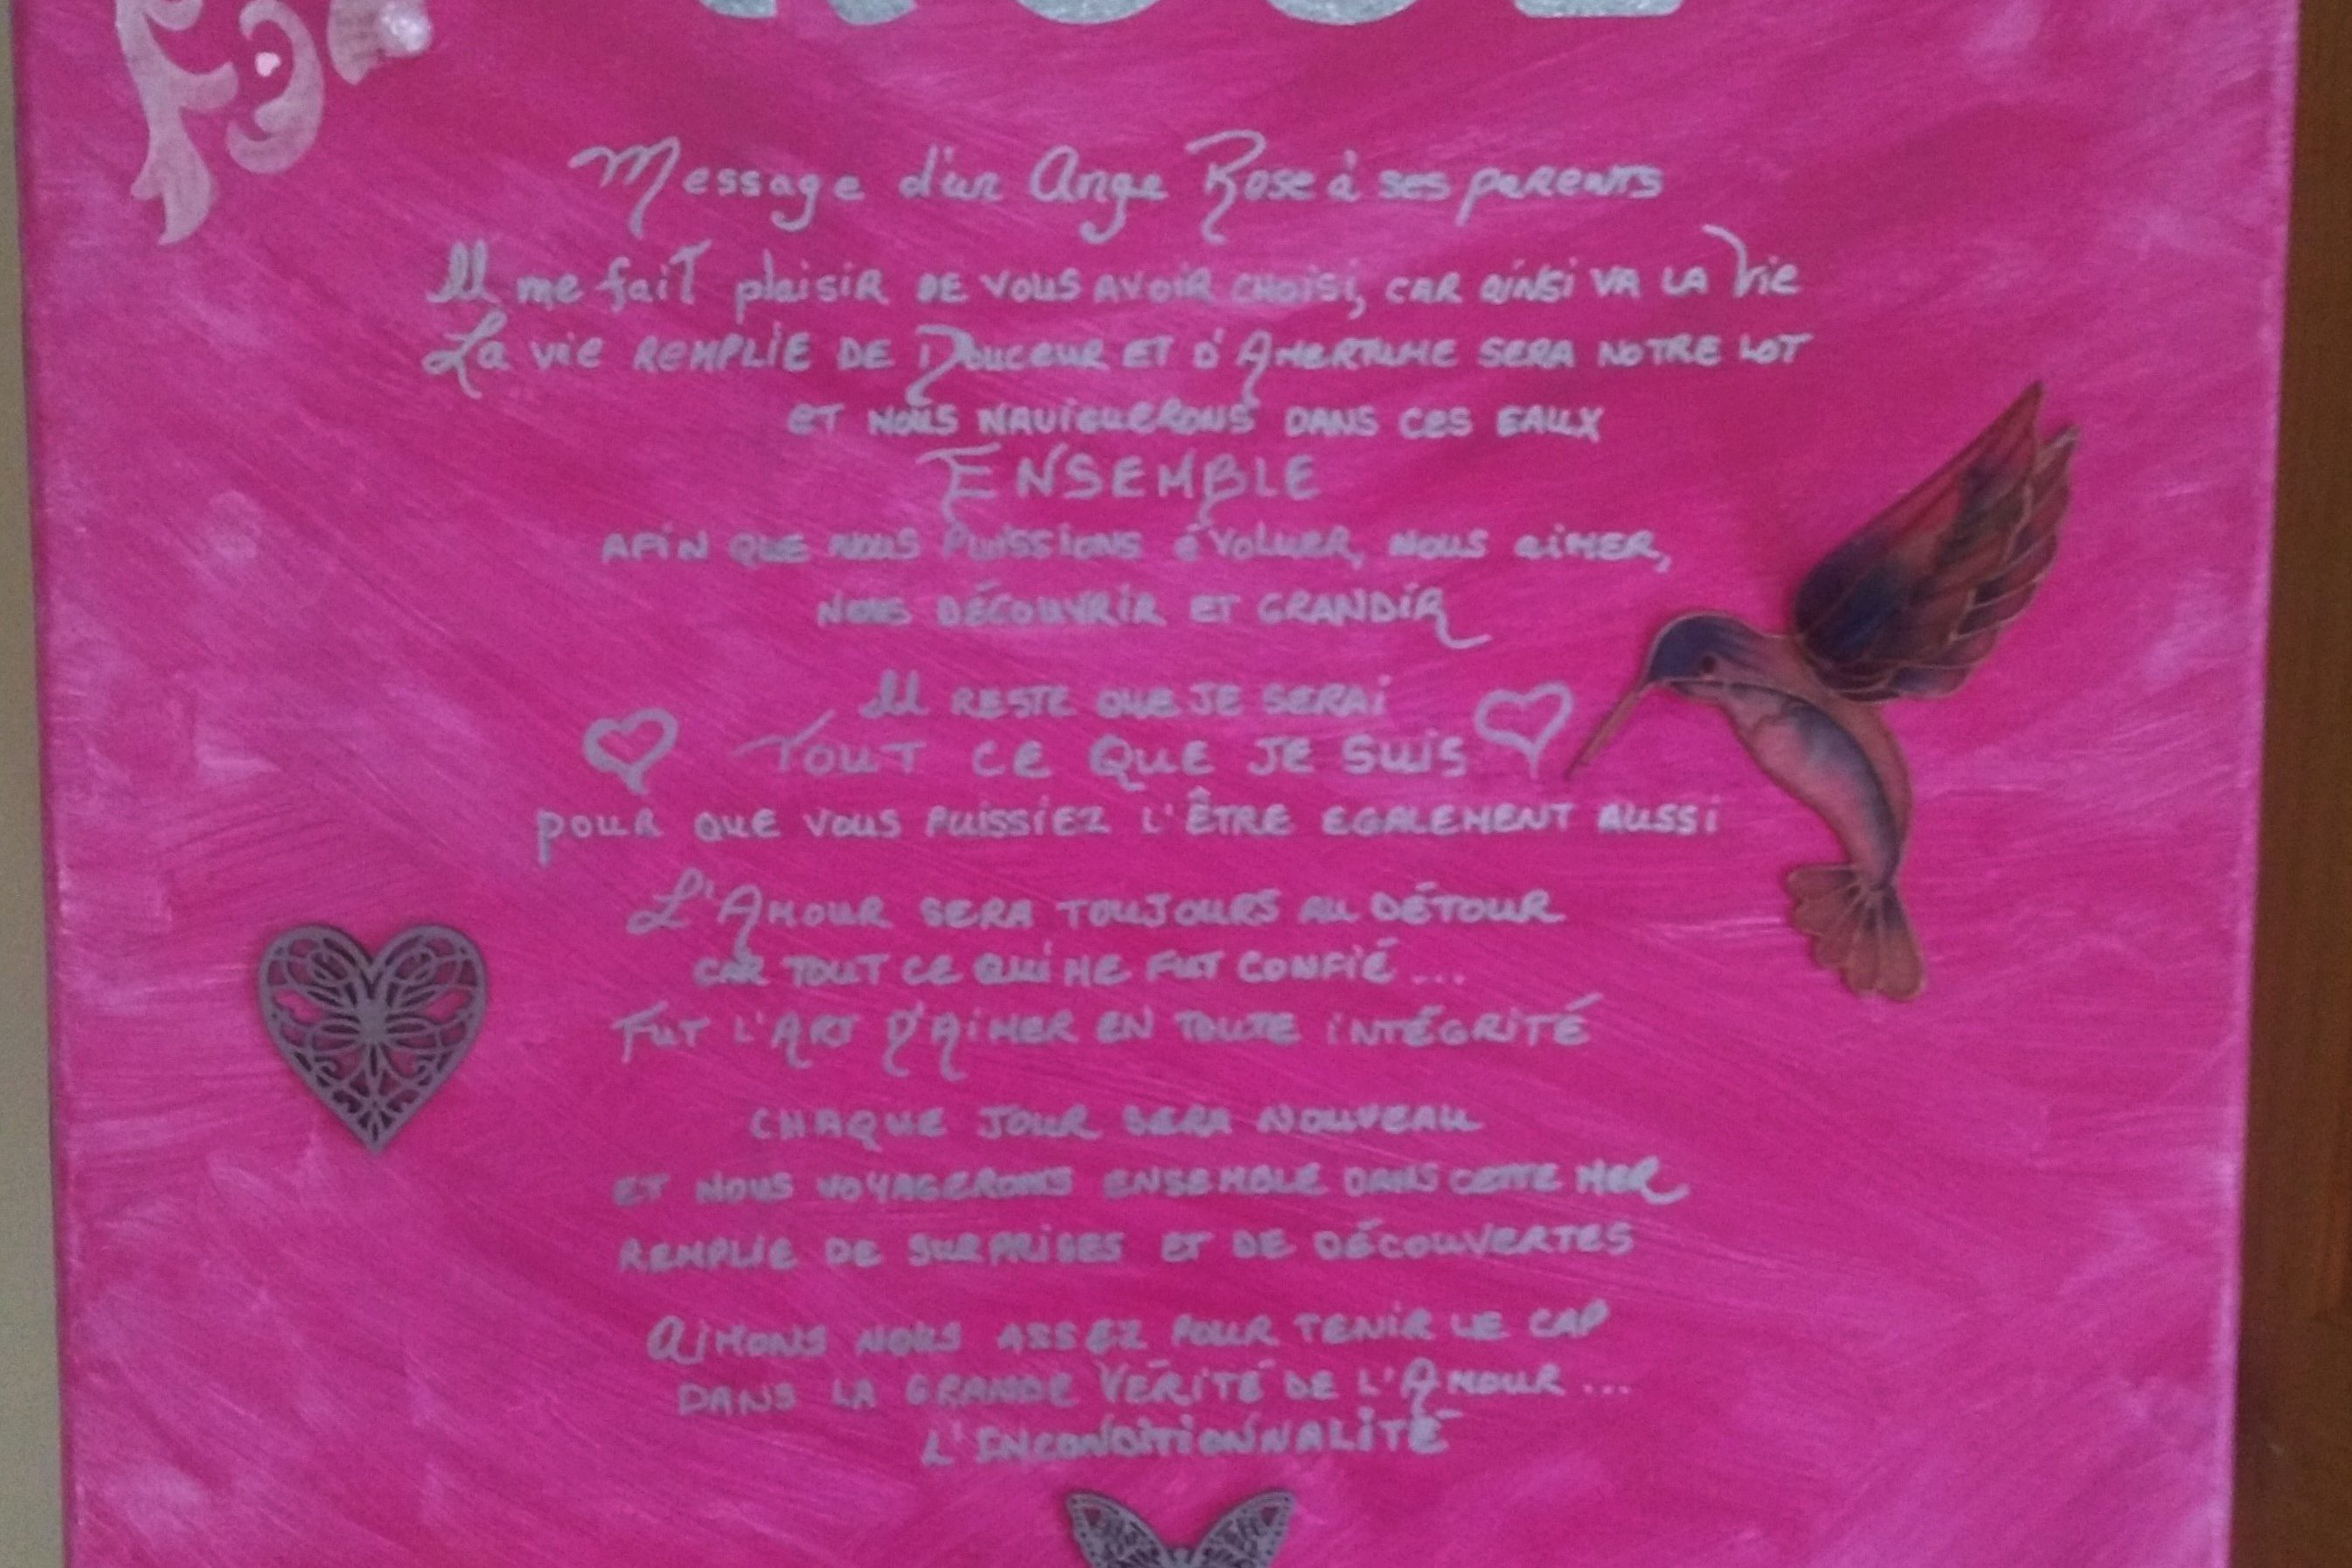 Message d'un Ange Rose à ses parents
Il me fait plaisir de vous avoir choisi, car ainsi va la Vie
La vie remplie de Douceur et d'Amertume sera notre lot
et nous naviguerons dans ces eaux
ENSEMBLE
afin que nous puissions évoluer, nous aimer,
nous découvrir et grandir
Il reste que je serai
Tout ce que je suis
pour que vous puissiez l'être egalement aussi
L'Amour sera toujours au détour
car tout ce qui me fut confié ...
Fut l'Art d'Aimer en toute intégrité
Chaque jour sera nouveau
et nous voyagerons ensemble dans cette mer
remplie de surprises et de découvertes
Aimons nous assez pour tenir le cap
dans la grande Vérité de l'Amour ...
L'Inconditionnalité